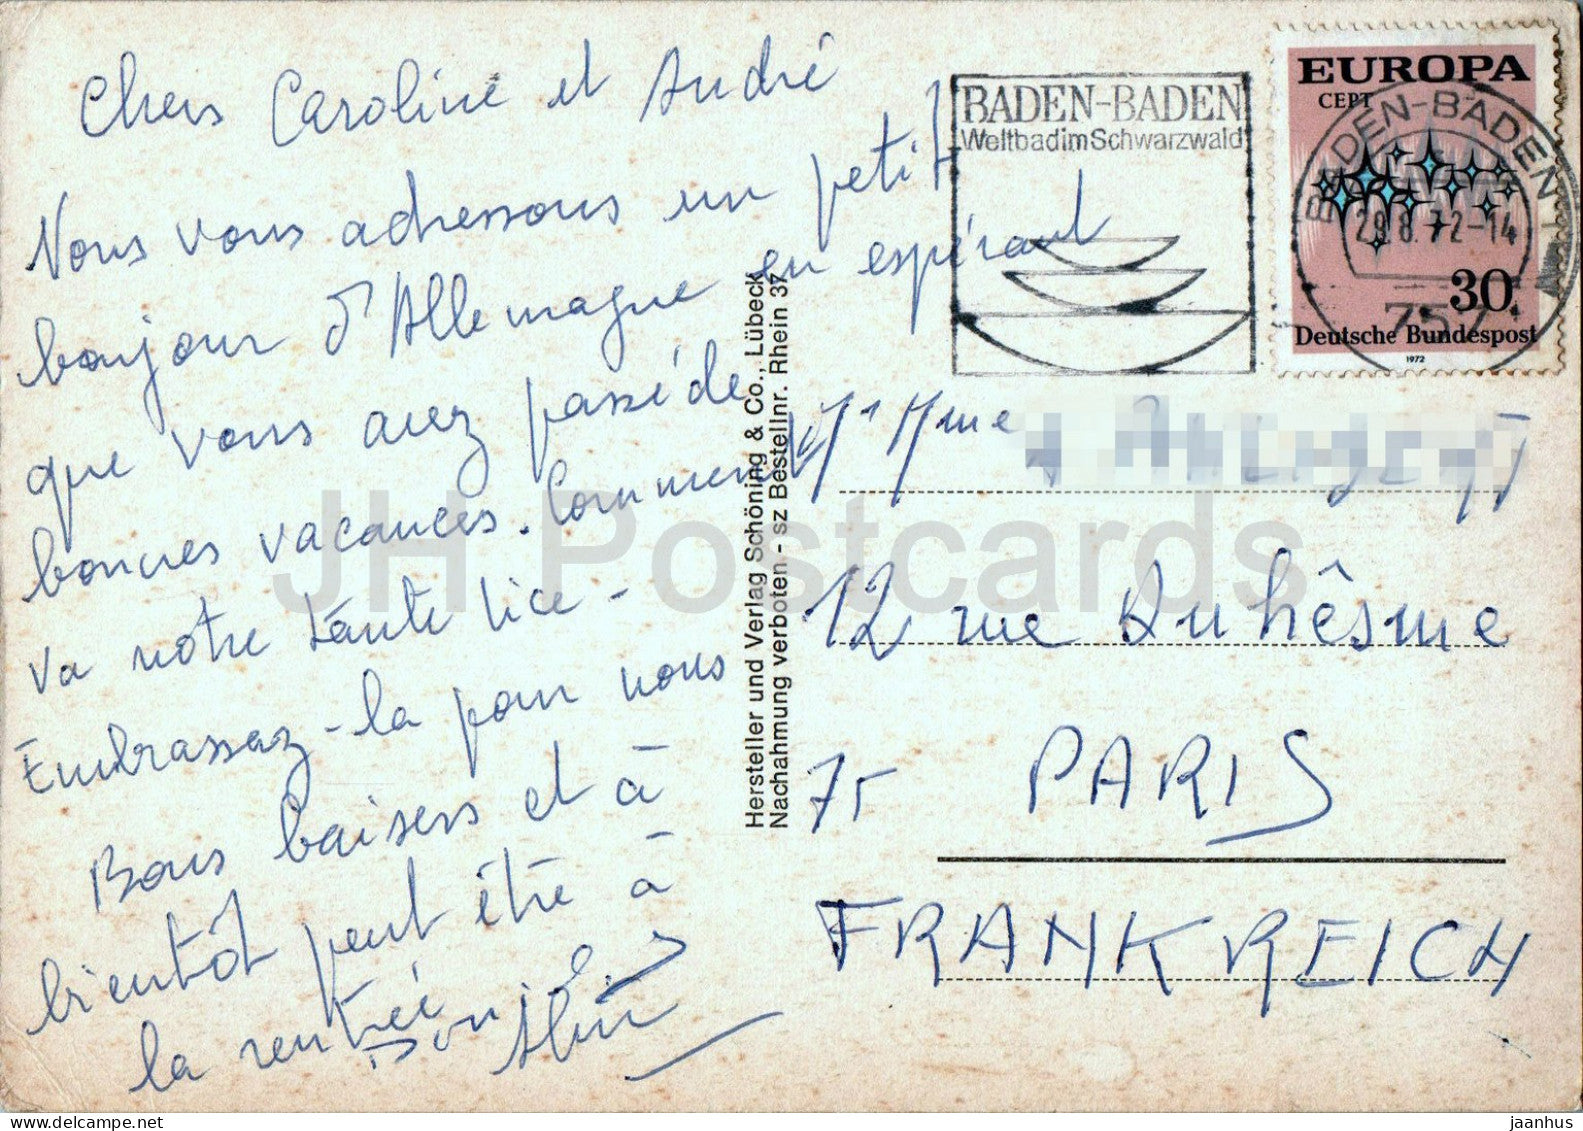 Chers Caroline et André
Nous vous adressons un petit
bonjour d'Allemagne en espérant
que vous avez passé de
bonnes vacances. Comment
va notre tante lice -
Embrassez-la pour nous
Bons baisers et à
bientôt peut être à
la rentrée
BADEN-BADEN
Weltbad im Schwarzwald
EUROPA
CEPT
BADEN-BADEN 1
29.8.72-14
757
30
Deutsche Bundespost
1972
Hersteller und Verlag Schöning & Co., Lübeck
Nachahmung verboten - sz Bestellnr. Rhein 37
Mr Mme
12 rue Duhêsme
75 PARIS
FRANKREICH
JH Postcards
delcampe.net
jaanhus